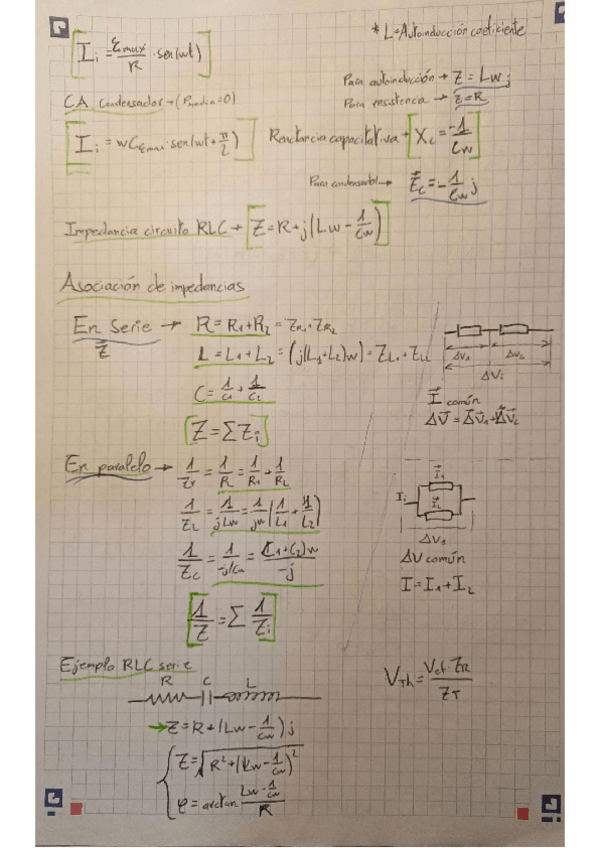 * L=Autoinducción coeficiente
I_i = ε_max/R · sen(wt)
Para autoinducción → Z = Lwj
Para resistencia → Z=R
CA Condensador → (P_media=0)
I_i = wCε_max · sen(wt+π/2)
Reactancia capacitativa → X_c = -1/Cw
Para condensador → = -1/Cw j
Impedancia circuito RLC → Z = R+j(Lw - 1/Cw)
Asociación de impedancias
En Serie → R = R1+R2 = Z_R1 + Z_R2
Z
L = L1+L2 = (j(L1+L2)w) = Z_L1 + Z_L2
C = 1/C1 + 1/C2
Z = ΣZi
ΔV1 ΔV2
ΔVi
I común
ΔV = ΔV1+ΔV2
En paralelo → = 1/R = 1/R1 + 1/R2
1/ZL = 1/jLw = 1/jw (1/L1 + 1/L2)
1/Zc = = (C1+C2)w/-j
1/Z = Σ 1/Zi
I1
Ii
I2
ΔV común
I = I1+I2
Ejemplo RLC serie
R C L
→ Z = R+(Lw - 1/Cw)j
Z = √R²+(Lw - 1/Cw)²
φ = arctan Lw - 1/Cw / R
V_Th = · Z_R / Z_T